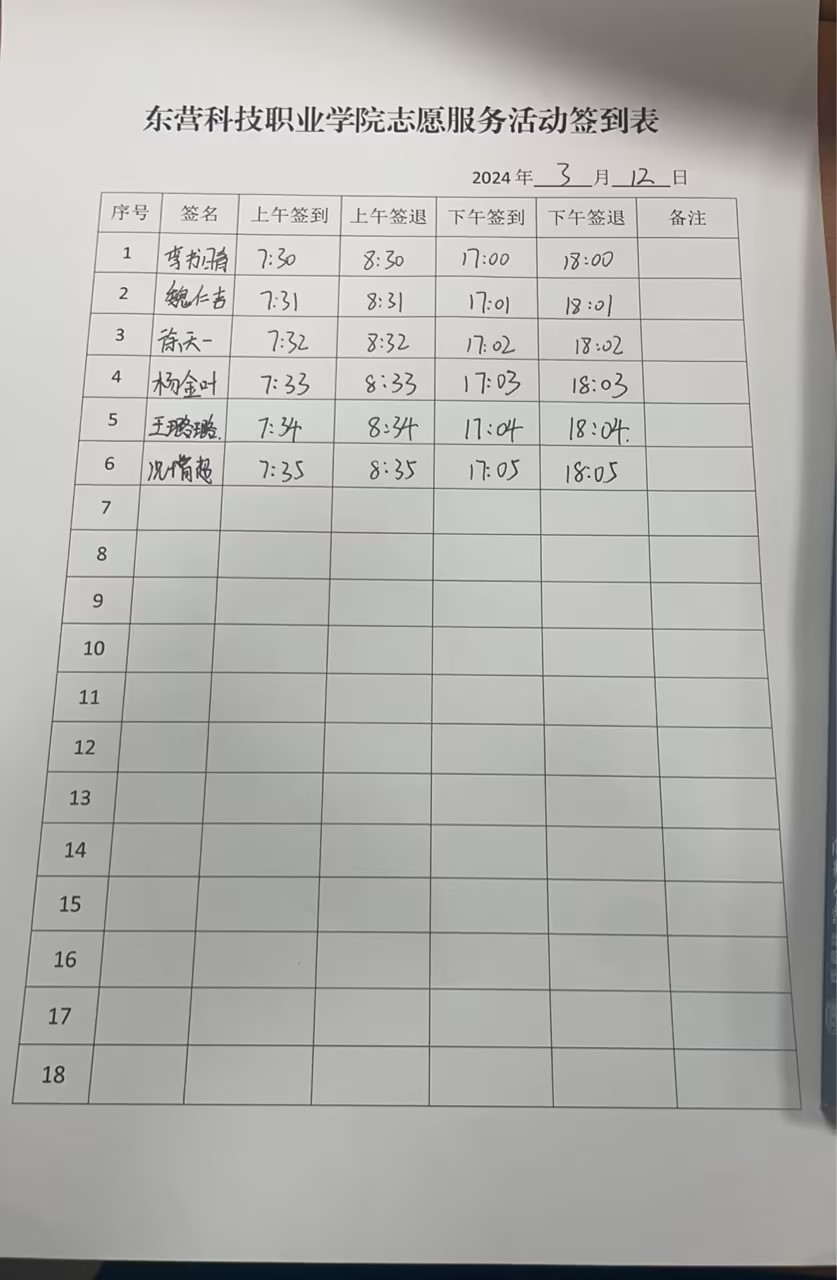 东营科技职业学院志愿服务活动签到表
2024 年 3 月 12 日
序号 签名 上午签到 上午签退 下午签到 下午签退 备注
1 7:30 8:30 17:00 18:00
2 魏仁吉 7:31 8:31 17:01 18:01
3 徐天一 7:32 8:32 17:02 18:02
4 杨金叶 7:33 8:33 17:03 18:03
5 王璐璐. 7:34 8:34 17:04 18:04.
6 7:35 8:35 17:05 18:05
7
8
9
10
11
12
13
14
15
16
17
18